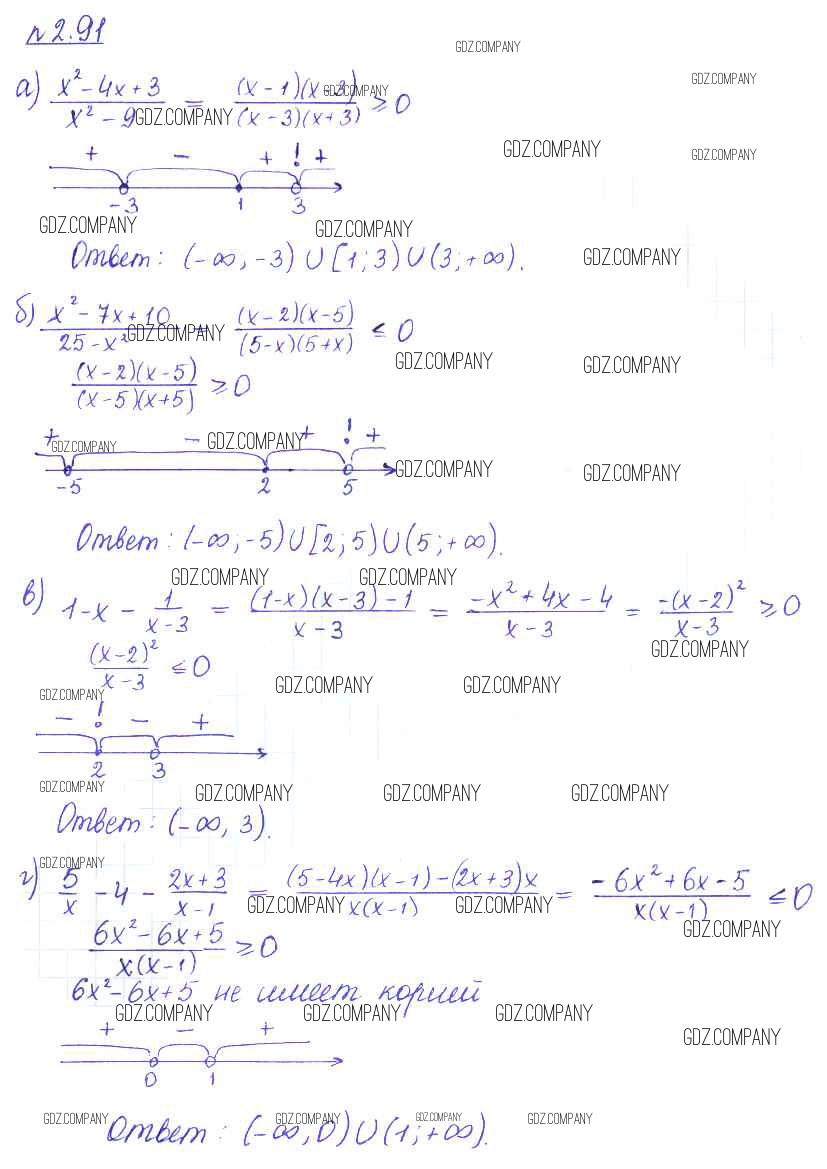 №2.91
GDZ.COMPANY
а) (x² - 4x + 3)/(x² - 9) = ((x - 1)(x - 3))/((x - 3)(x + 3)) ≥ 0
GDZ.COMPANY GDZ.COMPANY GDZ.COMPANY
GDZ.COMPANY GDZ.COMPANY
+ - + ! +
-3 1 3
GDZ.COMPANY GDZ.COMPANY
Ответ: (-∞, -3) ∪ [1; 3) ∪ (3; +∞).
GDZ.COMPANY
б) (x² - 7x + 10)/(25 - x²) = ((x - 2)(x - 5))/((5 - x)(5 + x)) ≤ 0
GDZ.COMPANY
GDZ.COMPANY GDZ.COMPANY
((x - 2)(x - 5))/((x - 5)(x + 5)) ≥ 0
+ - + ! +
GDZ.COMPANY GDZ.COMPANY
GDZ.COMPANY GDZ.COMPANY
-5 2 5
Ответ: (-∞; -5) ∪ [2; 5) ∪ (5; +∞).
GDZ.COMPANY GDZ.COMPANY
в) 1 - x - 1/(x - 3) = ((1 - x)(x - 3) - 1)/(x - 3) = (-x² + 4x - 4)/(x - 3) = (-(x - 2)²)/(x - 3) ≥ 0
GDZ.COMPANY
(x - 2)²/(x - 3) ≤ 0
GDZ.COMPANY GDZ.COMPANY
GDZ.COMPANY
- ! - +
2 3
GDZ.COMPANY GDZ.COMPANY GDZ.COMPANY GDZ.COMPANY
Ответ: (-∞, 3).
GDZ.COMPANY
г) 5/x - 4 - (2x + 3)/(x - 1) = ((5 - 4x)(x - 1) - (2x + 3)x)/(x(x - 1)) = (-6x² + 6x - 5)/(x(x - 1)) ≤ 0
GDZ.COMPANY GDZ.COMPANY
GDZ.COMPANY
(6x² - 6x + 5)/(x(x - 1)) ≥ 0
6x² - 6x + 5 не имеет корней
GDZ.COMPANY GDZ.COMPANY GDZ.COMPANY
GDZ.COMPANY
+ - +
0 1
GDZ.COMPANY GDZ.COMPANY GDZ.COMPANY GDZ.COMPANY
Ответ: (-∞, 0) ∪ (1; +∞).